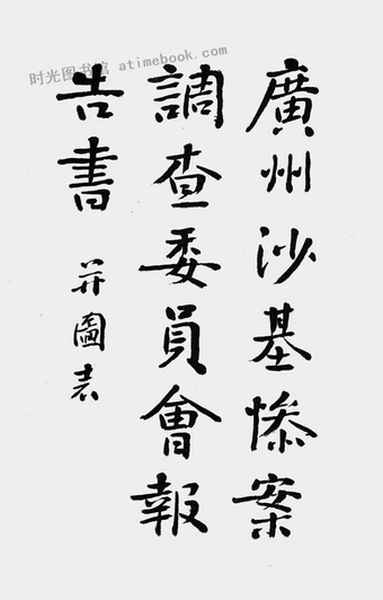 时光图书馆 atimebook.com
廣州沙基慘案
調查委員會報
告書 并圖表